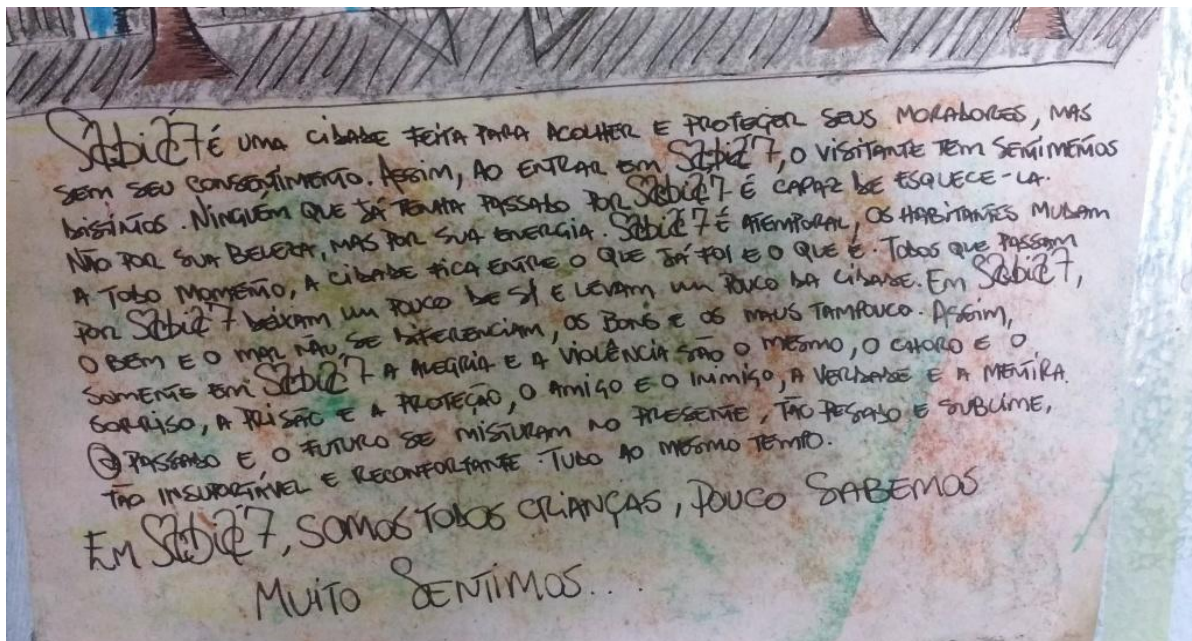 Sabiá 7 É UMA CIDADE FEITA PARA ACOLHER E PROTEGER SEUS MORADORES, MAS
SEM SEU CONSENTIMENTO. ASSIM, AO ENTRAR EM Sabiá 7, O VISITANTE TEM SENTIMENTOS
DISTINTOS. NINGUÉM QUE JÁ TENHA PASSADO POR Sabiá 7 É CAPAZ DE ESQUECE-LA.
NÃO POR SUA BELEZA, MAS POR SUA ENERGIA. Sabiá 7 É ATEMPORAL, OS HABITANTES MUDAM
A TODO MOMENTO, A CIDADE FICA ENTRE O QUE JÁ FOI E O QUE É. TODOS QUE PASSAM
POR Sabiá 7 DEIXAM UM POUCO DE SI E LEVAM UM POUCO DA CIDADE. EM Sabiá 7,
O BEM E O MAL NÃO SE DIFERENCIAM, OS BONS E OS MAUS TAMPOUCO. ASSIM,
SOMENTE EM Sabiá 7 A ALEGRIA E A VIOLÊNCIA SÃO O MESMO, O CHORO E O
SORRISO, A PRISÃO E A PROTEÇÃO, O AMIGO E O INIMIGO, A VERDADE E A MENTIRA.
O PASSADO E O FUTURO SE MISTURAM NO PRESENTE, TÃO PESADO E SUBLIME,
TÃO INSUPORTÁVEL E RECONFORTANTE. TUDO AO MESMO TEMPO.
EM Sabiá 7, SOMOS TODOS CRIANÇAS, POUCO SABEMOS
MUITO SENTIMOS...